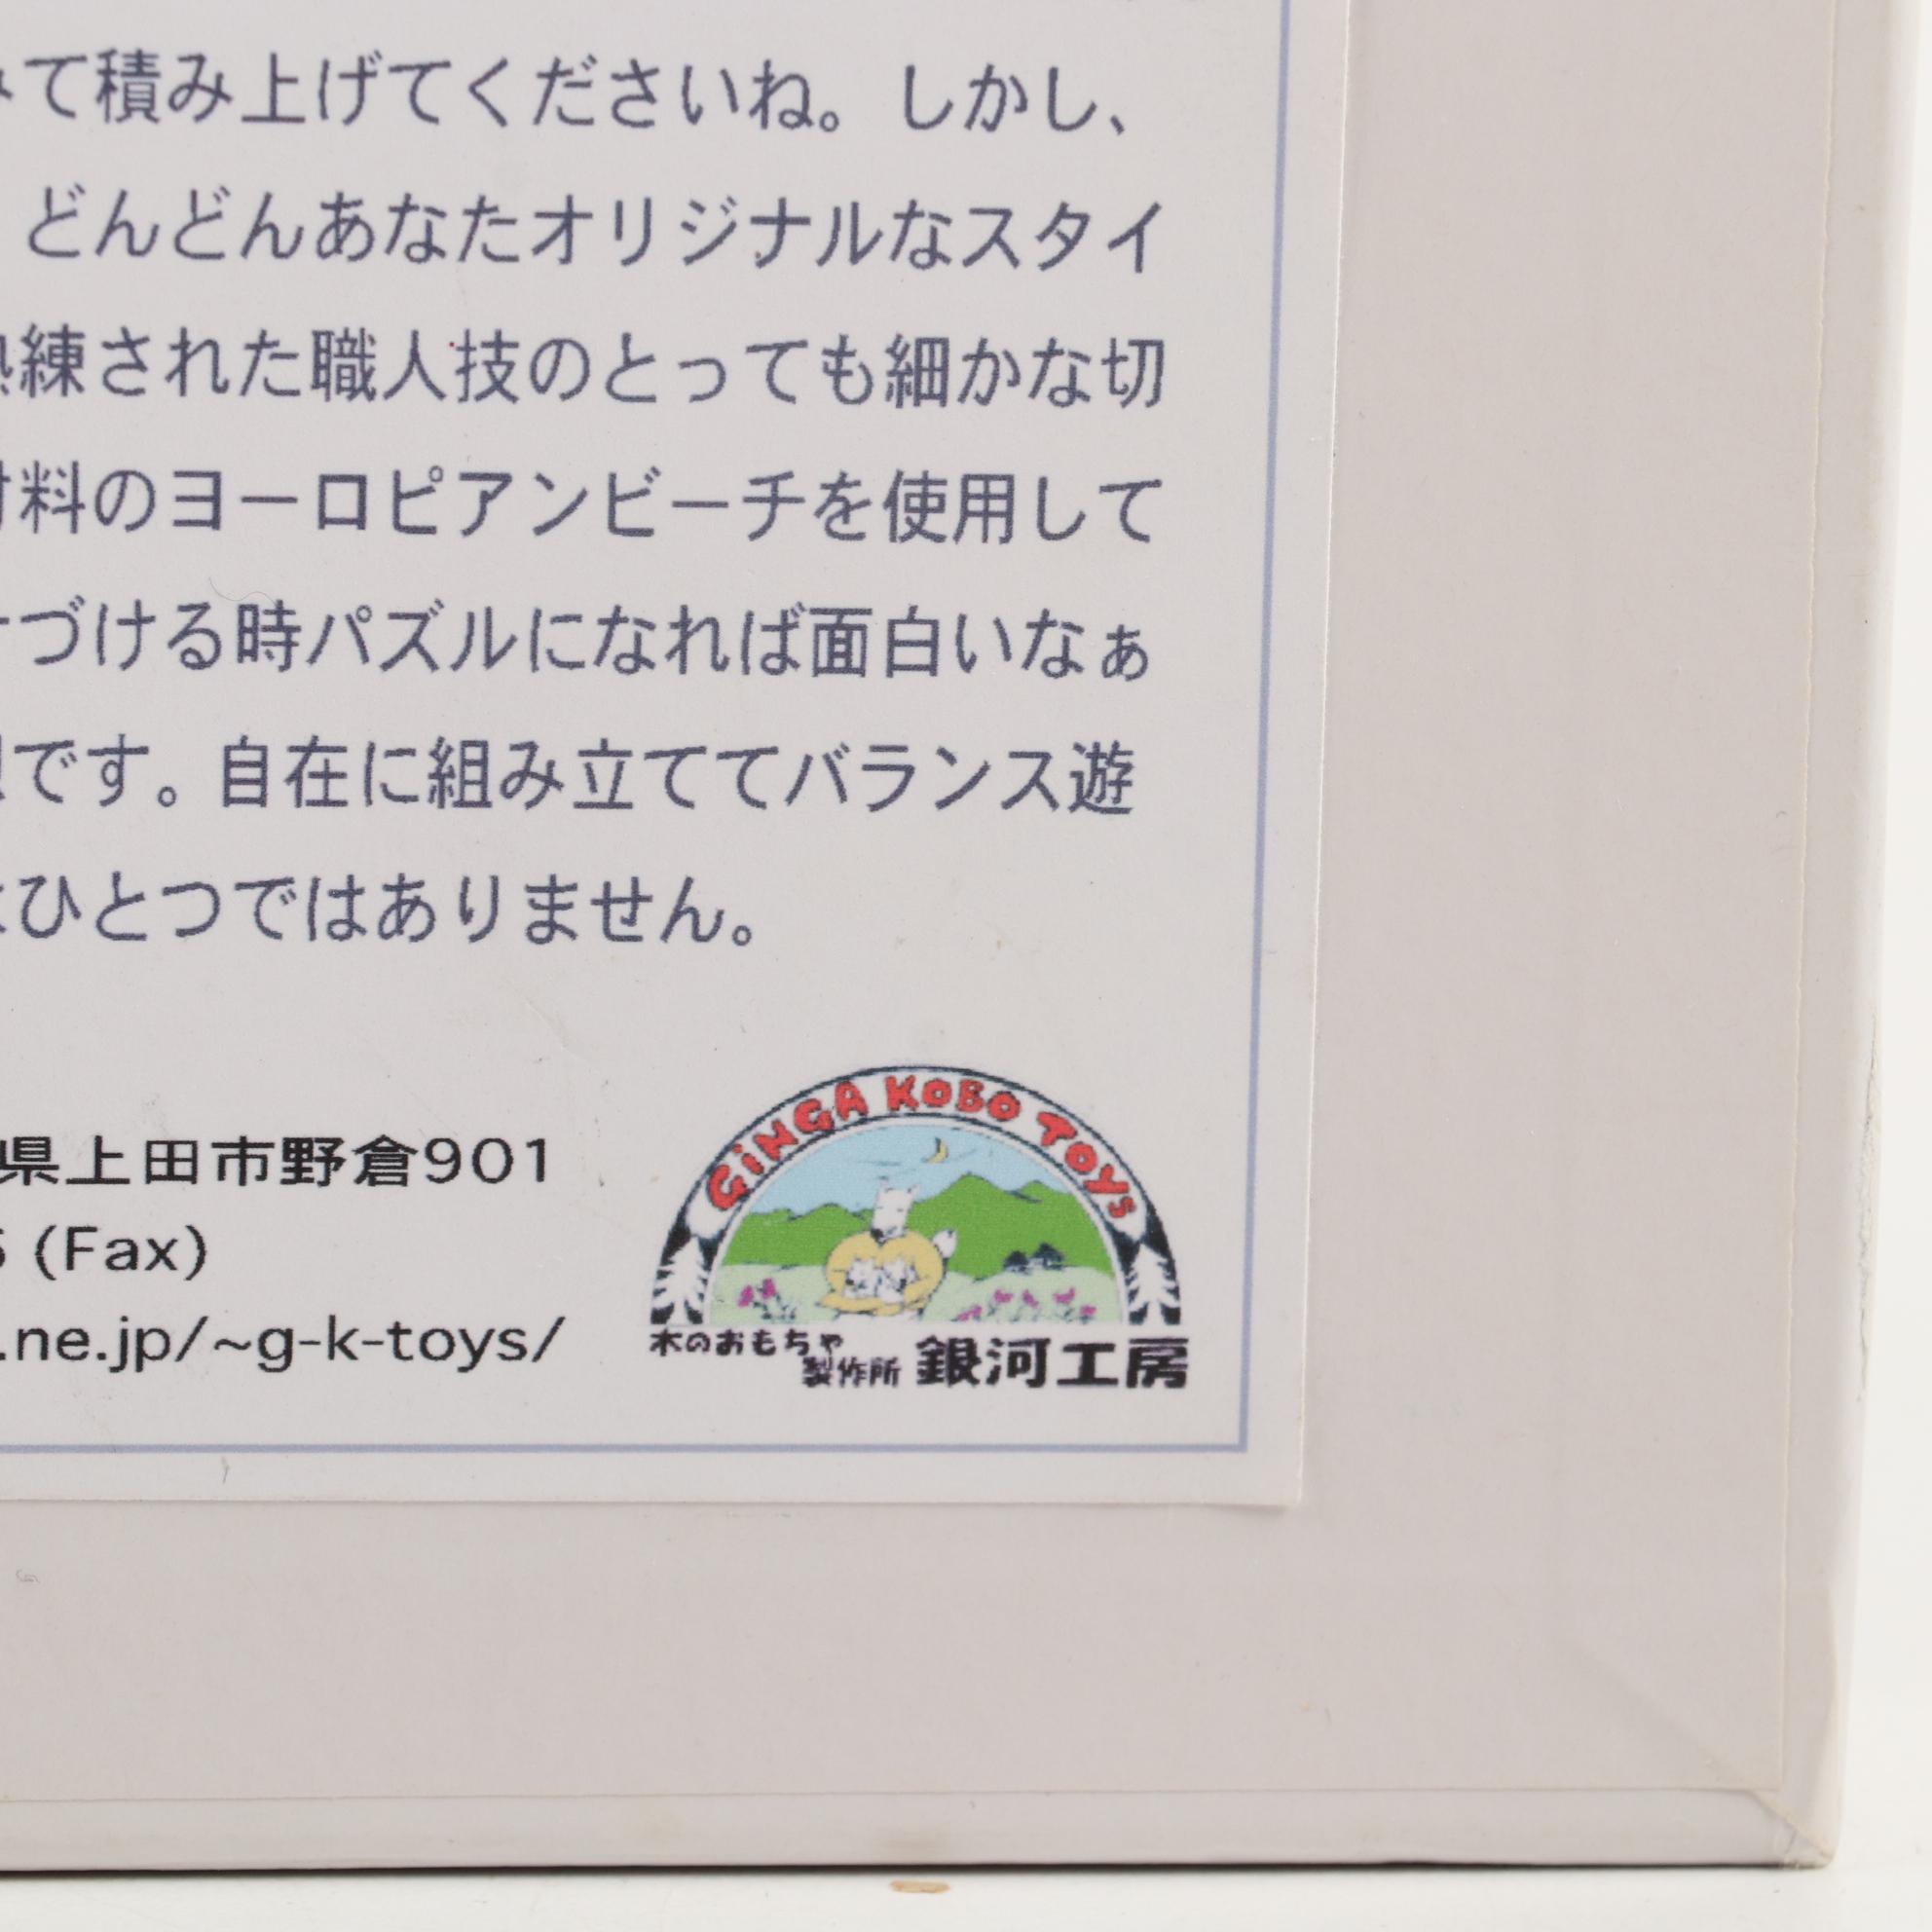 て積み上げてくださいね。しかし、
どんどんあなたオリジナルなスタイ
練された職人技のとっても細かな切
料のヨーロピアンビーチを使用して
づける時パズルになれば面白いなぁ
です。自在に組み立ててバランス遊
ひとつではありません。
県上田市野倉901
(Fax)
.ne.jp/~g-k-toys/
GINGA KOBO TOYS
木のおもちゃ
製作所 銀河工房